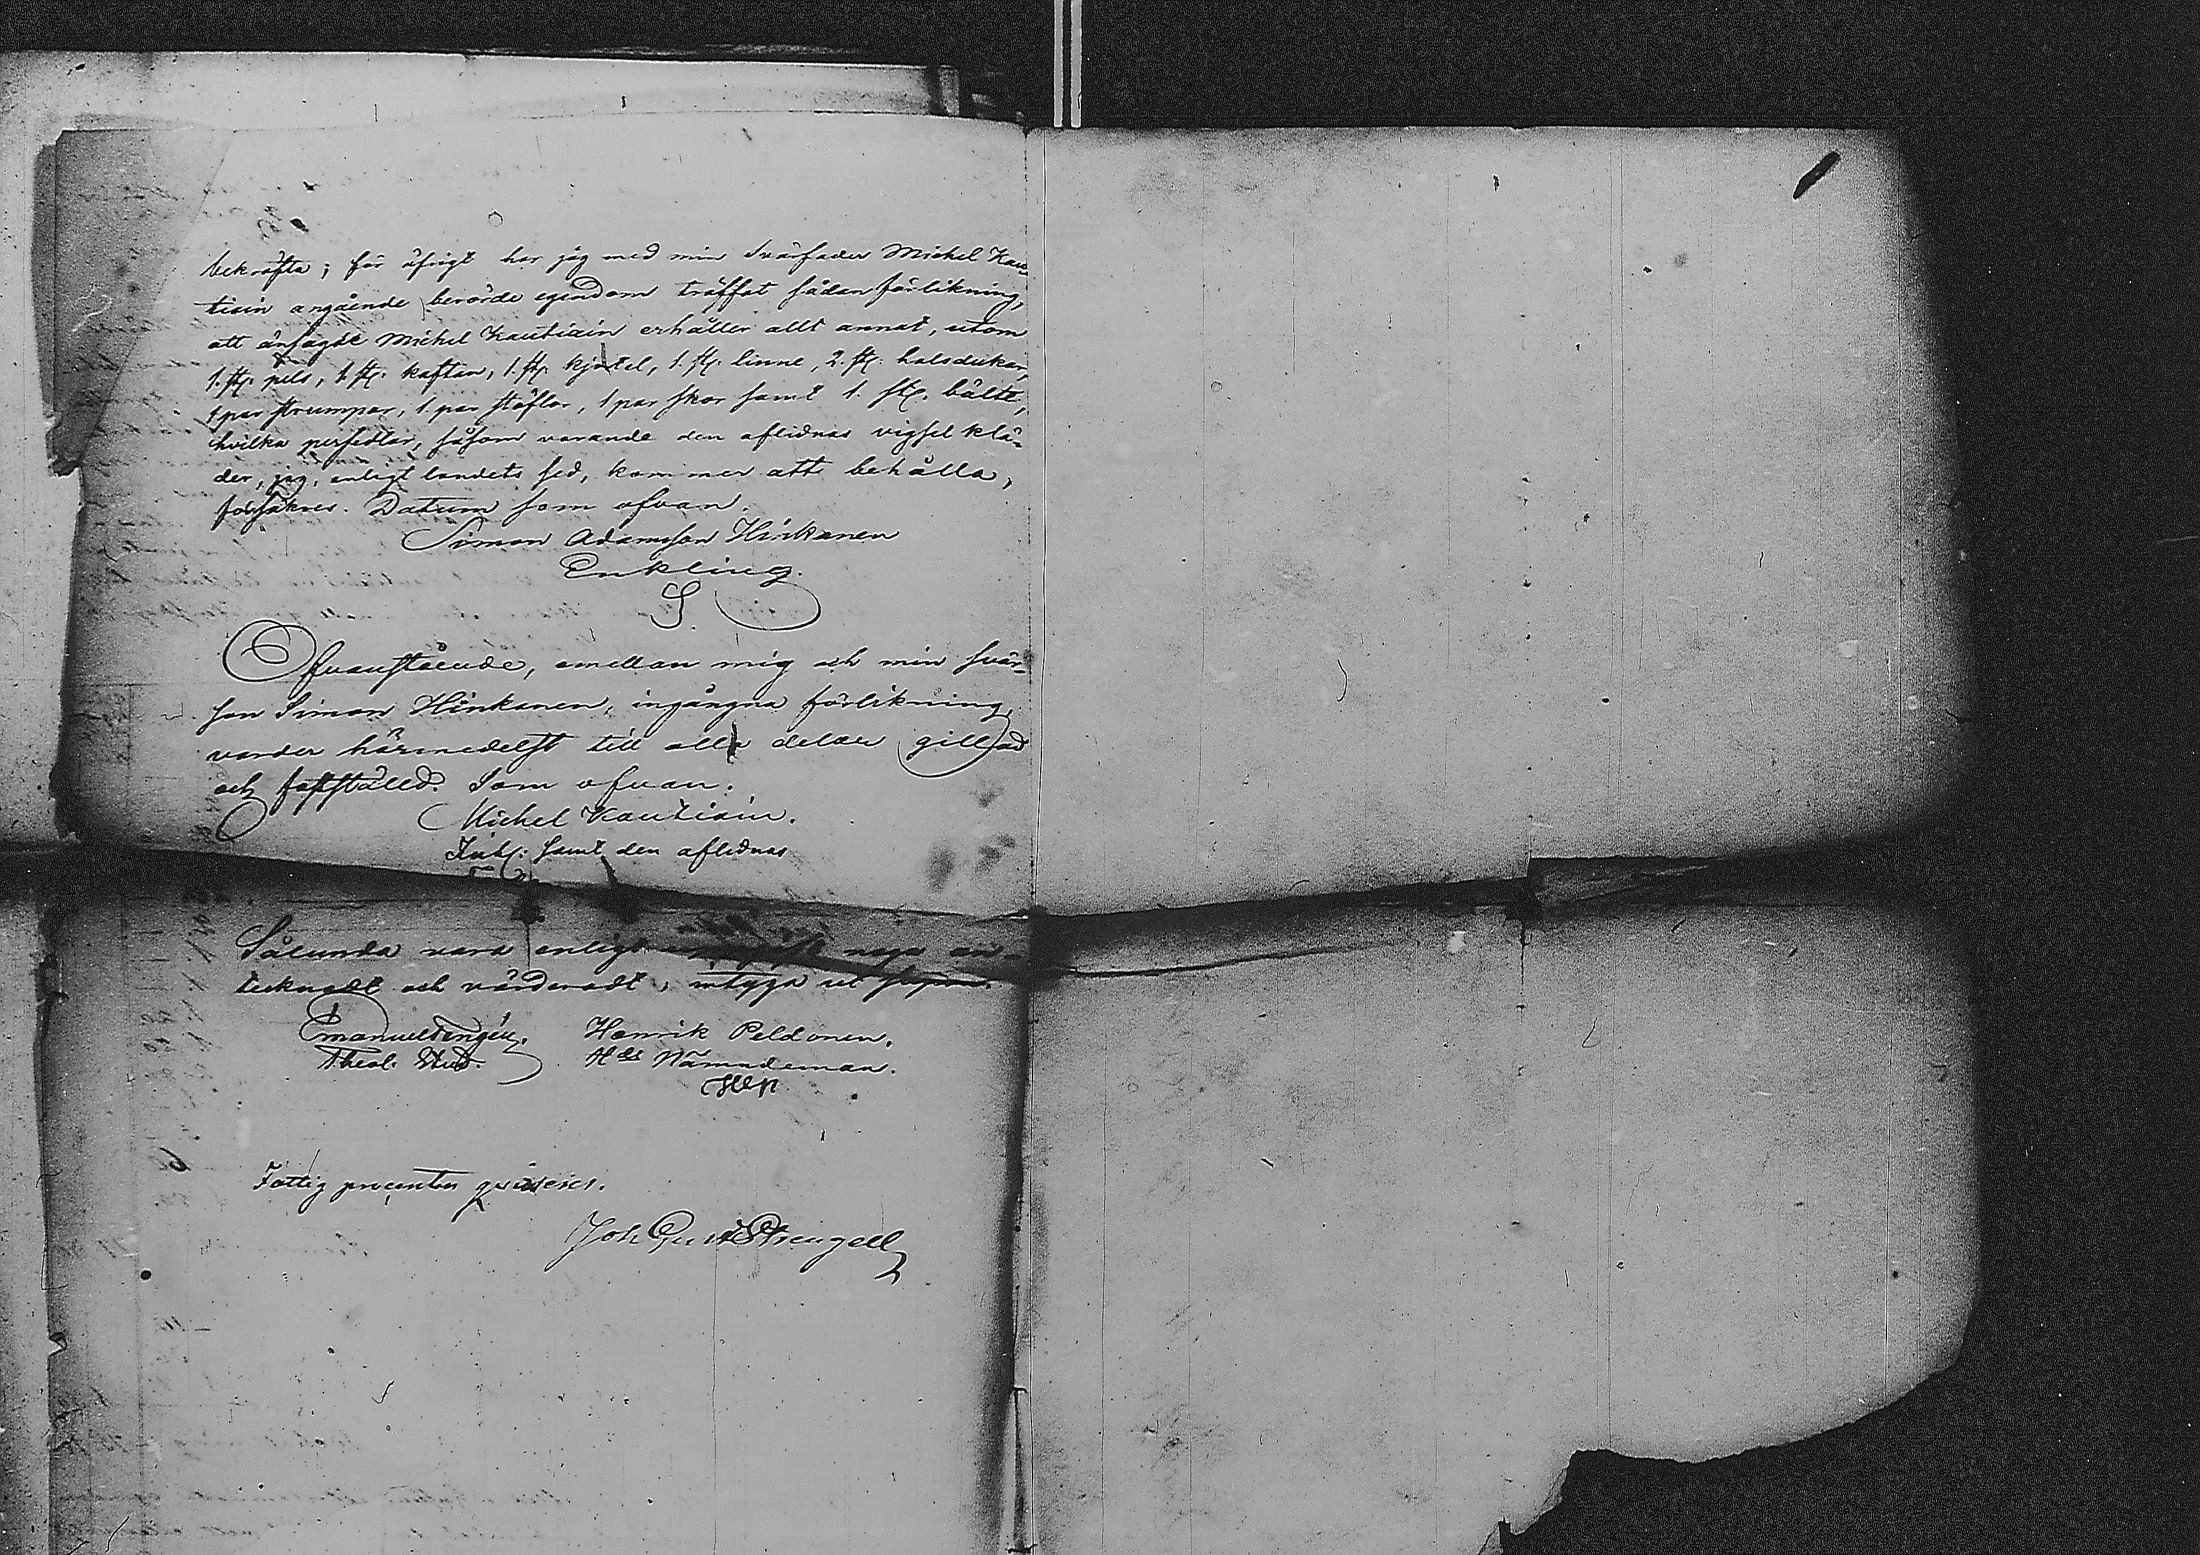 bekräfta; för öfrigt har jag med min Svärfader Michel Kau-
tiain angående berörde egendom träffat sådan förlikning,
att ansagde Michel Kautiain erhåller allt annat, utom
1. st. pels, 1 st. kaftan, 1. st. kjortel, 1. st. linne, 2. st. halsdukar,
1 par strumpor, 1 par stöflor, 1 par skor samt 1. st. bälte,
hvilka persedlar, såsom varande den aflidnas vigsel klä-
der, jag, enligt landets sed, kommer att behålla,
försäkras. Datum som ofvan.
Simon Adamsson Hinkanen
Enkling.
S.
Ofvanstående, emellan mig och min svär-
son Simon Hinkanen, ingångna förlikning,
varder härmedelst till alla delar gillad
och fastställd. Som ofvan.
Michel Kautiain.
Inh: samt den aflidnas
Sålunda vara enligt noga an-
tecknadt och värderadt, intyga
Emanuel
Theol. Stud.
Henrik Peldonen.
Hds Nämndeman.
HHP
Fattig procenten qvitteras.
Joh Gust Strengell